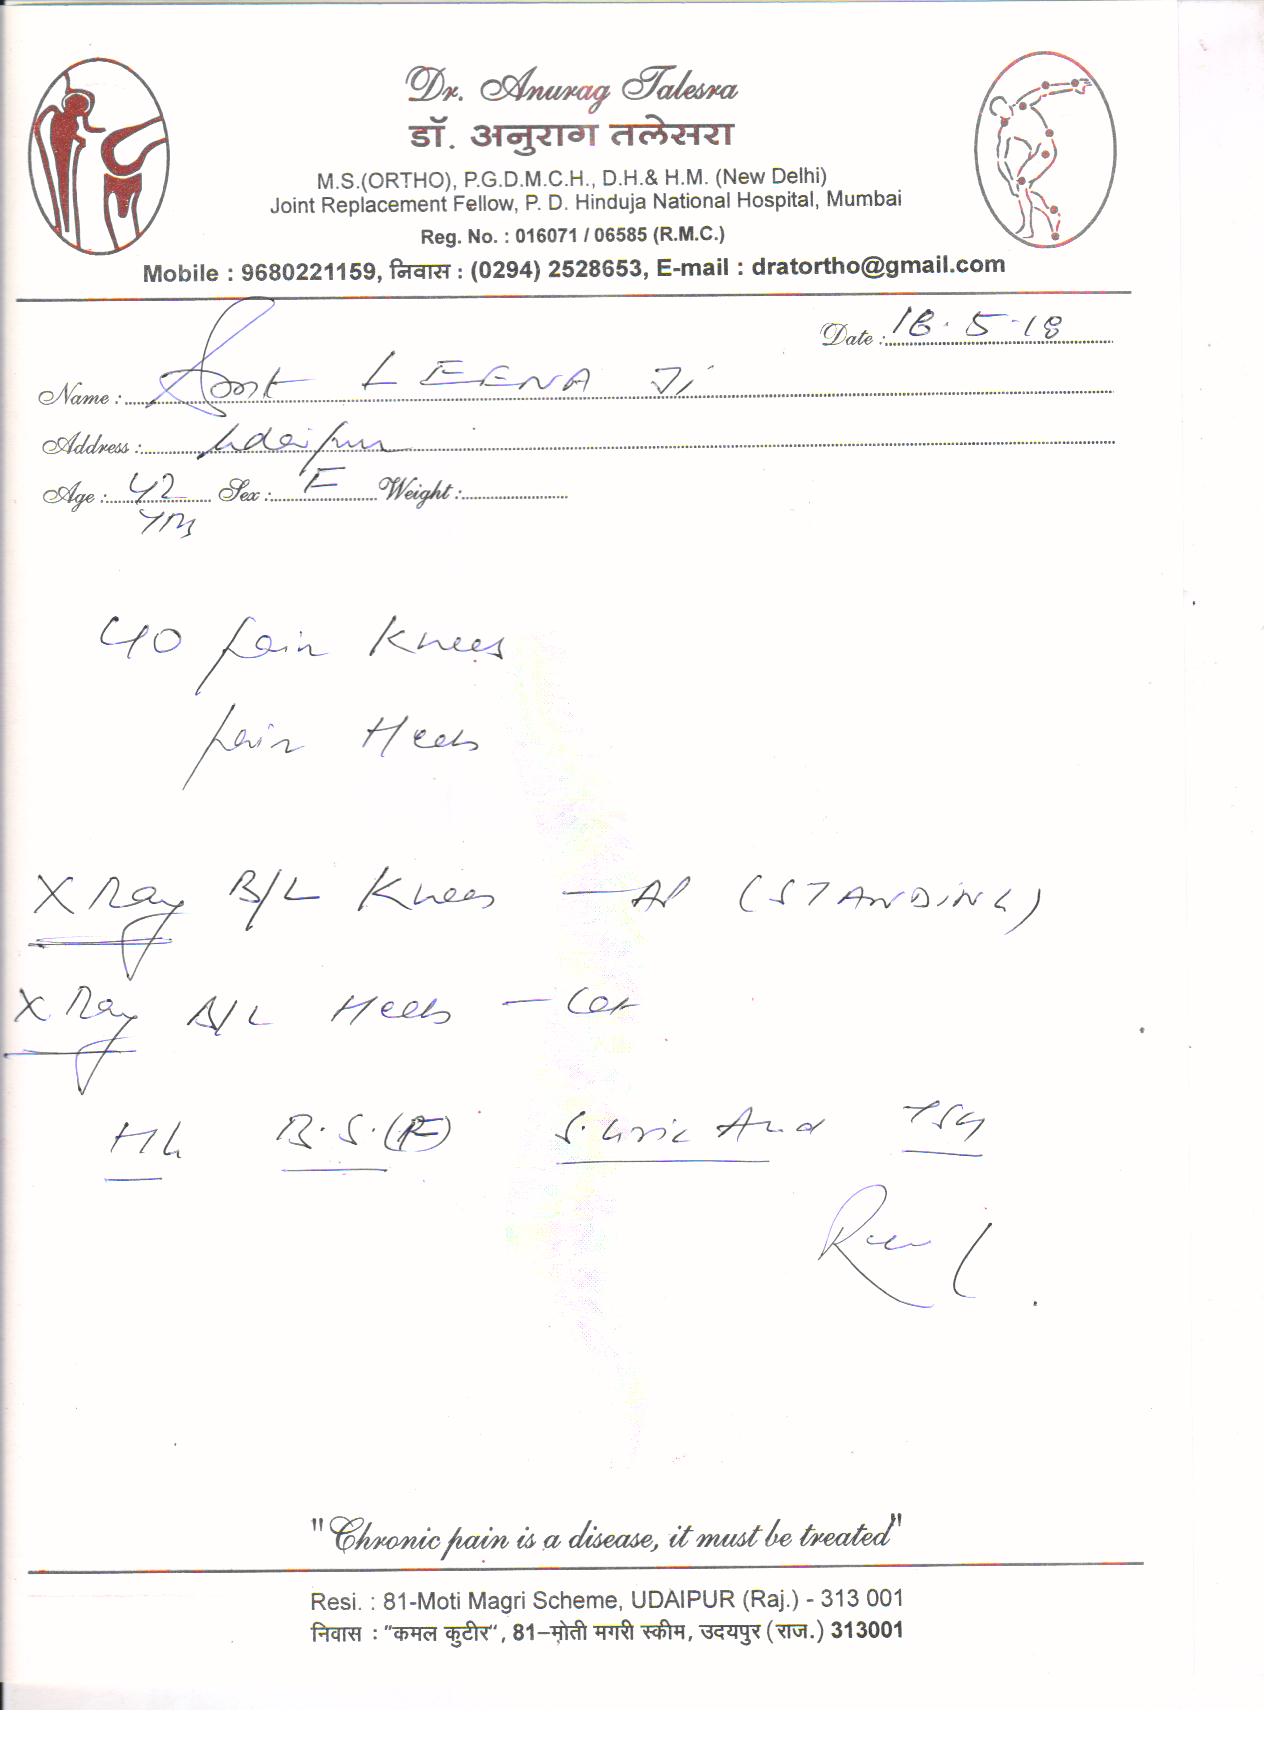 Dr. Anurag Talesra
डॉ. अनुराग तलेसरा
M.S.(ORTHO), P.G.D.M.C.H., D.H.& H.M. (New Delhi)
Joint Replacement Fellow, P. D. Hinduja National Hospital, Mumbai
Reg. No. : 016071 / 06585 (R.M.C.)
Mobile : 9680221159, निवास : (0294) 2528653, E-mail : dratortho@gmail.com
Date : 18.5.18
Name : Smt LEENA Ji
Address : Udaipur
Age : 42 Sex : F Weight :
yrs
C/O Pain Knees
Pain Heels
X Ray B/L Knees — AP (STANDING)
X Ray B/L Heels — Lat
Hb B.S.(R) S. Uric Acid TSH
"Chronic pain is a disease, it must be treated"
Resi. : 81-Moti Magri Scheme, UDAIPUR (Raj.) - 313 001
निवास : "कमल कुटीर", 81–मोती मगरी स्कीम, उदयपुर (राज.) 313001